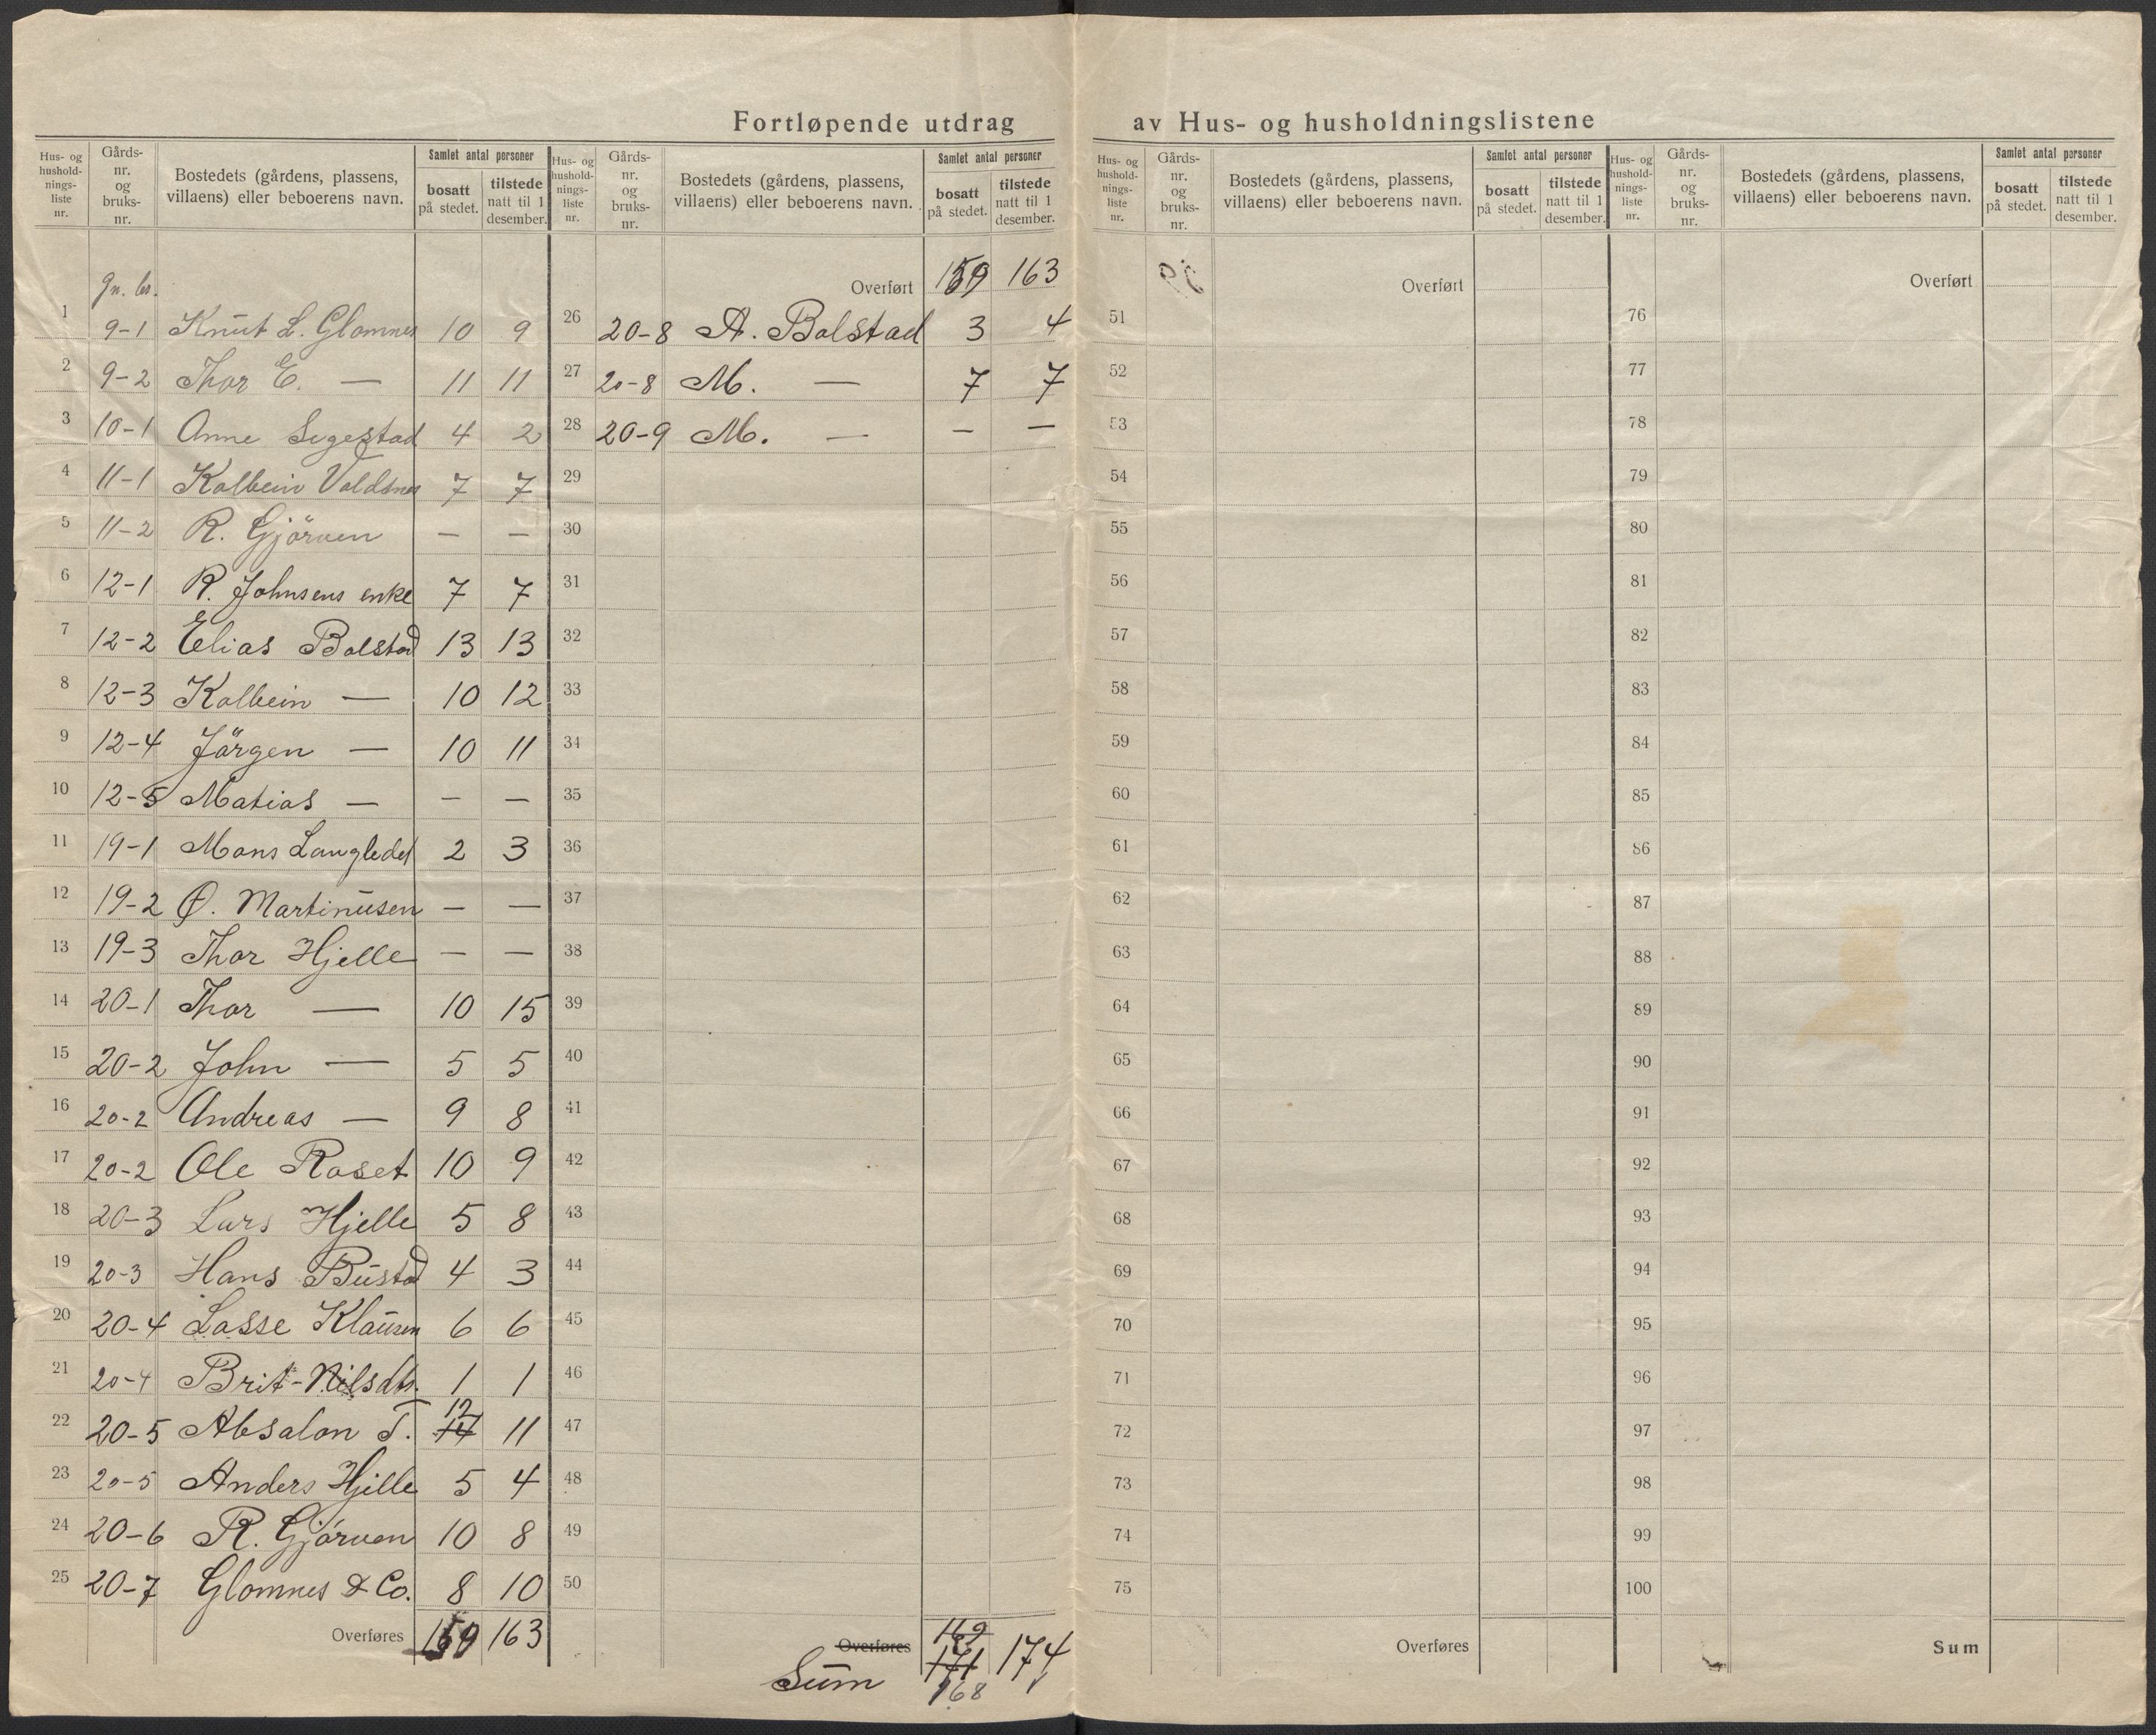 Fortløpende utdrag av Hus- og husholdningslistene
Hus- og hushold-nings-liste nr. Gårds-nr. og bruks-nr. Bostedets (gårdens, plassens, villaens) eller beboerens navn. Samlet antal personer bosatt på stedet. tilstede natt til 1 desember.
Gn. br.
1 9-1 Knut L. Glomnes 10 9
2 9-2 Thor E. — 11 11
3 10-1 Anne Segestad 4 2
4 11-1 Kolbein Voldsnes 7 7
5 11-2 R. Gjörven — —
6 12-1 R. Johnsens enke 7 7
7 12-2 Elias Bolstad 13 13
8 12-3 Kolbein — 10 12
9 12-4 Jörgen — 10 11
10 12-5 Matias — — —
11 19-1 Mons Langledet 2 3
12 19-2 O. Martinusen — —
13 19-3 Thor Hjelle — —
14 20-1 Thor — 10 15
15 20-2 John — 5 5
16 20-2 Andreas — 9 8
17 20-2 Ole Raset 10 9
18 20-3 Lars Hjelle 5 8
19 20-3 Hans Bustad 4 3
20 20-4 Lasse Klausen 6 6
21 20-4 Brit-Nilsdtr. 1 1
22 20-5 Absalon T. 12 14 11
23 20-5 Anders Hjelle 5 4
24 20-6 R. Gjörven 10 8
25 20-7 Glomnes & Co. 8 10
Overføres 159 163
Hus- og hushold-nings-liste nr. Gårds-nr. og bruks-nr. Bostedets (gårdens, plassens, villaens) eller beboerens navn. Samlet antal personer bosatt på stedet. tilstede natt til 1 desember.
Overført 159 163
26 20-8 A. Bolstad 3 4
27 20-8 M. — 7 7
28 20-9 M. — — —
29
30
31
32
33
34
35
36
37
38
39
40
41
42
43
44
45
46
47
48
49
50
Overføres 169
Sum 171 174
168
Hus- og hushold-nings-liste nr. Gårds-nr. og bruks-nr. Bostedets (gårdens, plassens, villaens) eller beboerens navn. Samlet antal personer bosatt på stedet. tilstede natt til 1 desember.
Overført
51
52
53
54
55
56
57
58
59
60
61
62
63
64
65
66
67
68
69
70
71
72
73
74
75
Overføres
Hus- og hushold-nings-liste nr. Gårds-nr. og bruks-nr. Bostedets (gårdens, plassens, villaens) eller beboerens navn. Samlet antal personer bosatt på stedet. tilstede natt til 1 desember.
Overført
76
77
78
79
80
81
82
83
84
85
86
87
88
89
90
91
92
93
94
95
96
97
98
99
100
Sum